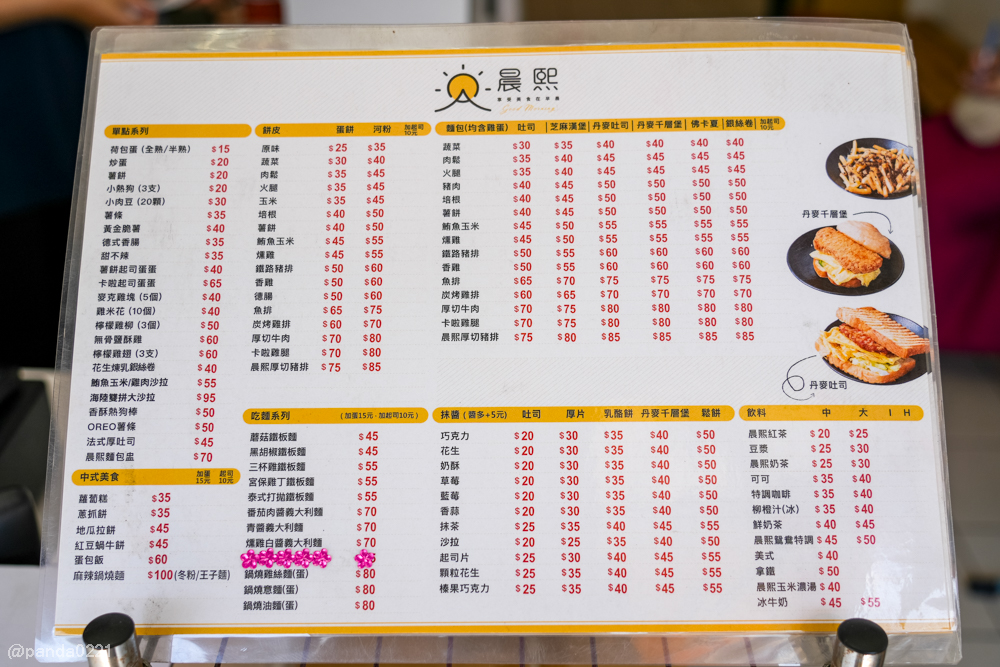 晨熙
Good Morning
單點系列
荷包蛋 (全熟/半熟) $15
炒蛋 $20
薯餅 $20
小熱狗 (3支) $20
小肉豆 (20顆) $30
薯條 $35
黃金脆薯 $40
德式香腸 $35
甜不辣 $35
薯餅起司蛋蛋 $40
卡啦起司蛋蛋 $65
麥克雞塊 (5個) $40
雞米花 (10個) $40
檸檬雞柳 (3個) $50
無骨鹽酥雞 $60
檸檬雞翅 (3支) $60
花生煉乳銀絲卷 $40
鮪魚玉米/雞肉沙拉 $55
海陸雙拼大沙拉 $95
香酥熱狗棒 $50
OREO薯條 $50
法式厚吐司 $45
晨熙麵包盅 $70
中式美食 加蛋15元 起司10元
蘿蔔糕 $35
蔥抓餅 $35
地瓜拉餅 $45
紅豆鍋牛餅 $45
蛋包飯 $60
麻辣鍋燒麵 $100(冬粉/王子麵)
餅皮 蛋餅 河粉 加起司10元
原味 $25 $35
蔬菜 $30 $40
肉鬆 $35 $45
火腿 $35 $45
玉米 $35 $45
培根 $40 $50
薯餅 $40 $50
鮪魚玉米 $45 $55
燻雞 $45 $55
鐵路豬排 $50 $60
香雞 $50 $60
德腸 $50 $60
魚排 $65 $75
炭烤雞排 $60 $70
厚切牛肉 $70 $80
卡啦雞腿 $70 $80
晨熙厚切豬排 $75 $85
吃麵系列 (加蛋15元‧加起司10元)
蘑菇鐵板麵 $45
黑胡椒鐵板麵 $45
三杯雞鐵板麵 $55
宮保雞丁鐵板麵 $55
泰式打拋鐵板麵 $55
番茄肉醬義大利麵 $70
青醬義大利麵 $70
燻雞白醬義大利麵 $70
鍋燒雞絲麵(蛋) $80
鍋燒意麵(蛋) $80
鍋燒油麵(蛋) $80
麵包(均含雞蛋) 吐司 芝麻漢堡 丹麥吐司 丹麥千層堡 佛卡夏 銀絲卷 加起司10元
蔬菜 $30 $35 $40 $40 $40 $40
肉鬆 $35 $40 $45 $45 $45 $45
火腿 $35 $40 $45 $45 $45 $45
豬肉 $40 $45 $50 $50 $50 $50
培根 $40 $45 $50 $50 $50 $50
薯餅 $40 $45 $50 $50 $50 $50
鮪魚玉米 $45 $50 $55 $55 $55 $55
燻雞 $45 $50 $55 $55 $55 $55
鐵路豬排 $50 $55 $60 $60 $60 $60
香雞 $50 $55 $60 $60 $60 $60
魚排 $65 $70 $75 $75 $75 $75
炭烤雞排 $60 $65 $70 $70 $70 $70
厚切牛肉 $70 $75 $80 $80 $80 $80
卡啦雞腿 $70 $75 $80 $80 $80 $80
晨熙厚切豬排 $75 $80 $85 $85 $85 $85
丹麥千層堡
丹麥吐司
抹醬 (醬多+5元) 吐司 厚片 乳酪餅 丹麥千層堡 鬆餅
巧克力 $20 $30 $35 $40 $50
花生 $20 $30 $35 $40 $50
奶酥 $20 $30 $35 $40 $50
草莓 $20 $30 $35 $40 $50
藍莓 $20 $30 $35 $40 $50
香蒜 $20 $30 $35 $40 $50
抹茶 $25 $35 $40 $45 $55
沙拉 $20 $25 $35 $40 $50
起司片 $25 $30 $40 $45 $55
顆粒花生 $25 $35 $40 $45 $55
榛果巧克力 $25 $35 $40 $45 $55
飲料 中 大 I H
晨熙紅茶 $20 $25
豆漿 $25 $30
晨熙奶茶 $25 $30
可可 $35 $40
特調咖啡 $35 $40
柳橙汁(冰) $35 $40
鮮奶茶 $40 $45
晨熙鴛鴦特調 $45 $50
美式 $40
拿鐵 $50
晨熙玉米濃湯 $40
冰牛奶 $45 $55
@panda0221